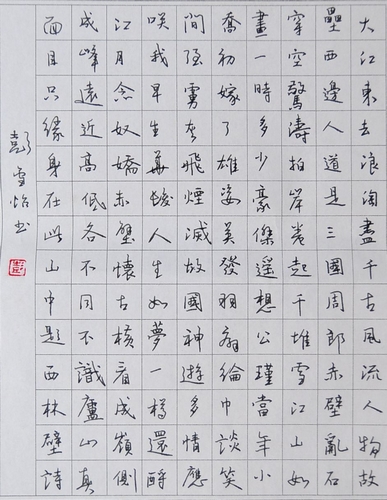 大江東去浪淘盡千古風流人物故
壘西邊人道是三國周郎赤壁亂石
穿空驚濤拍岸卷起千堆雪江山如
畫一時多少豪傑遙想公瑾當年小
喬初嫁了雄姿英發羽扇綸巾談笑
間強虜灰飛煙滅故國神遊多情應
咲我早生華髮人生如夢一樽還酹
江月念奴嬌赤壁懷古橫看成嶺側
成峰遠近高低各不同不識廬山真
面目只緣身在此山中題西林壁詩
彭雪怡书